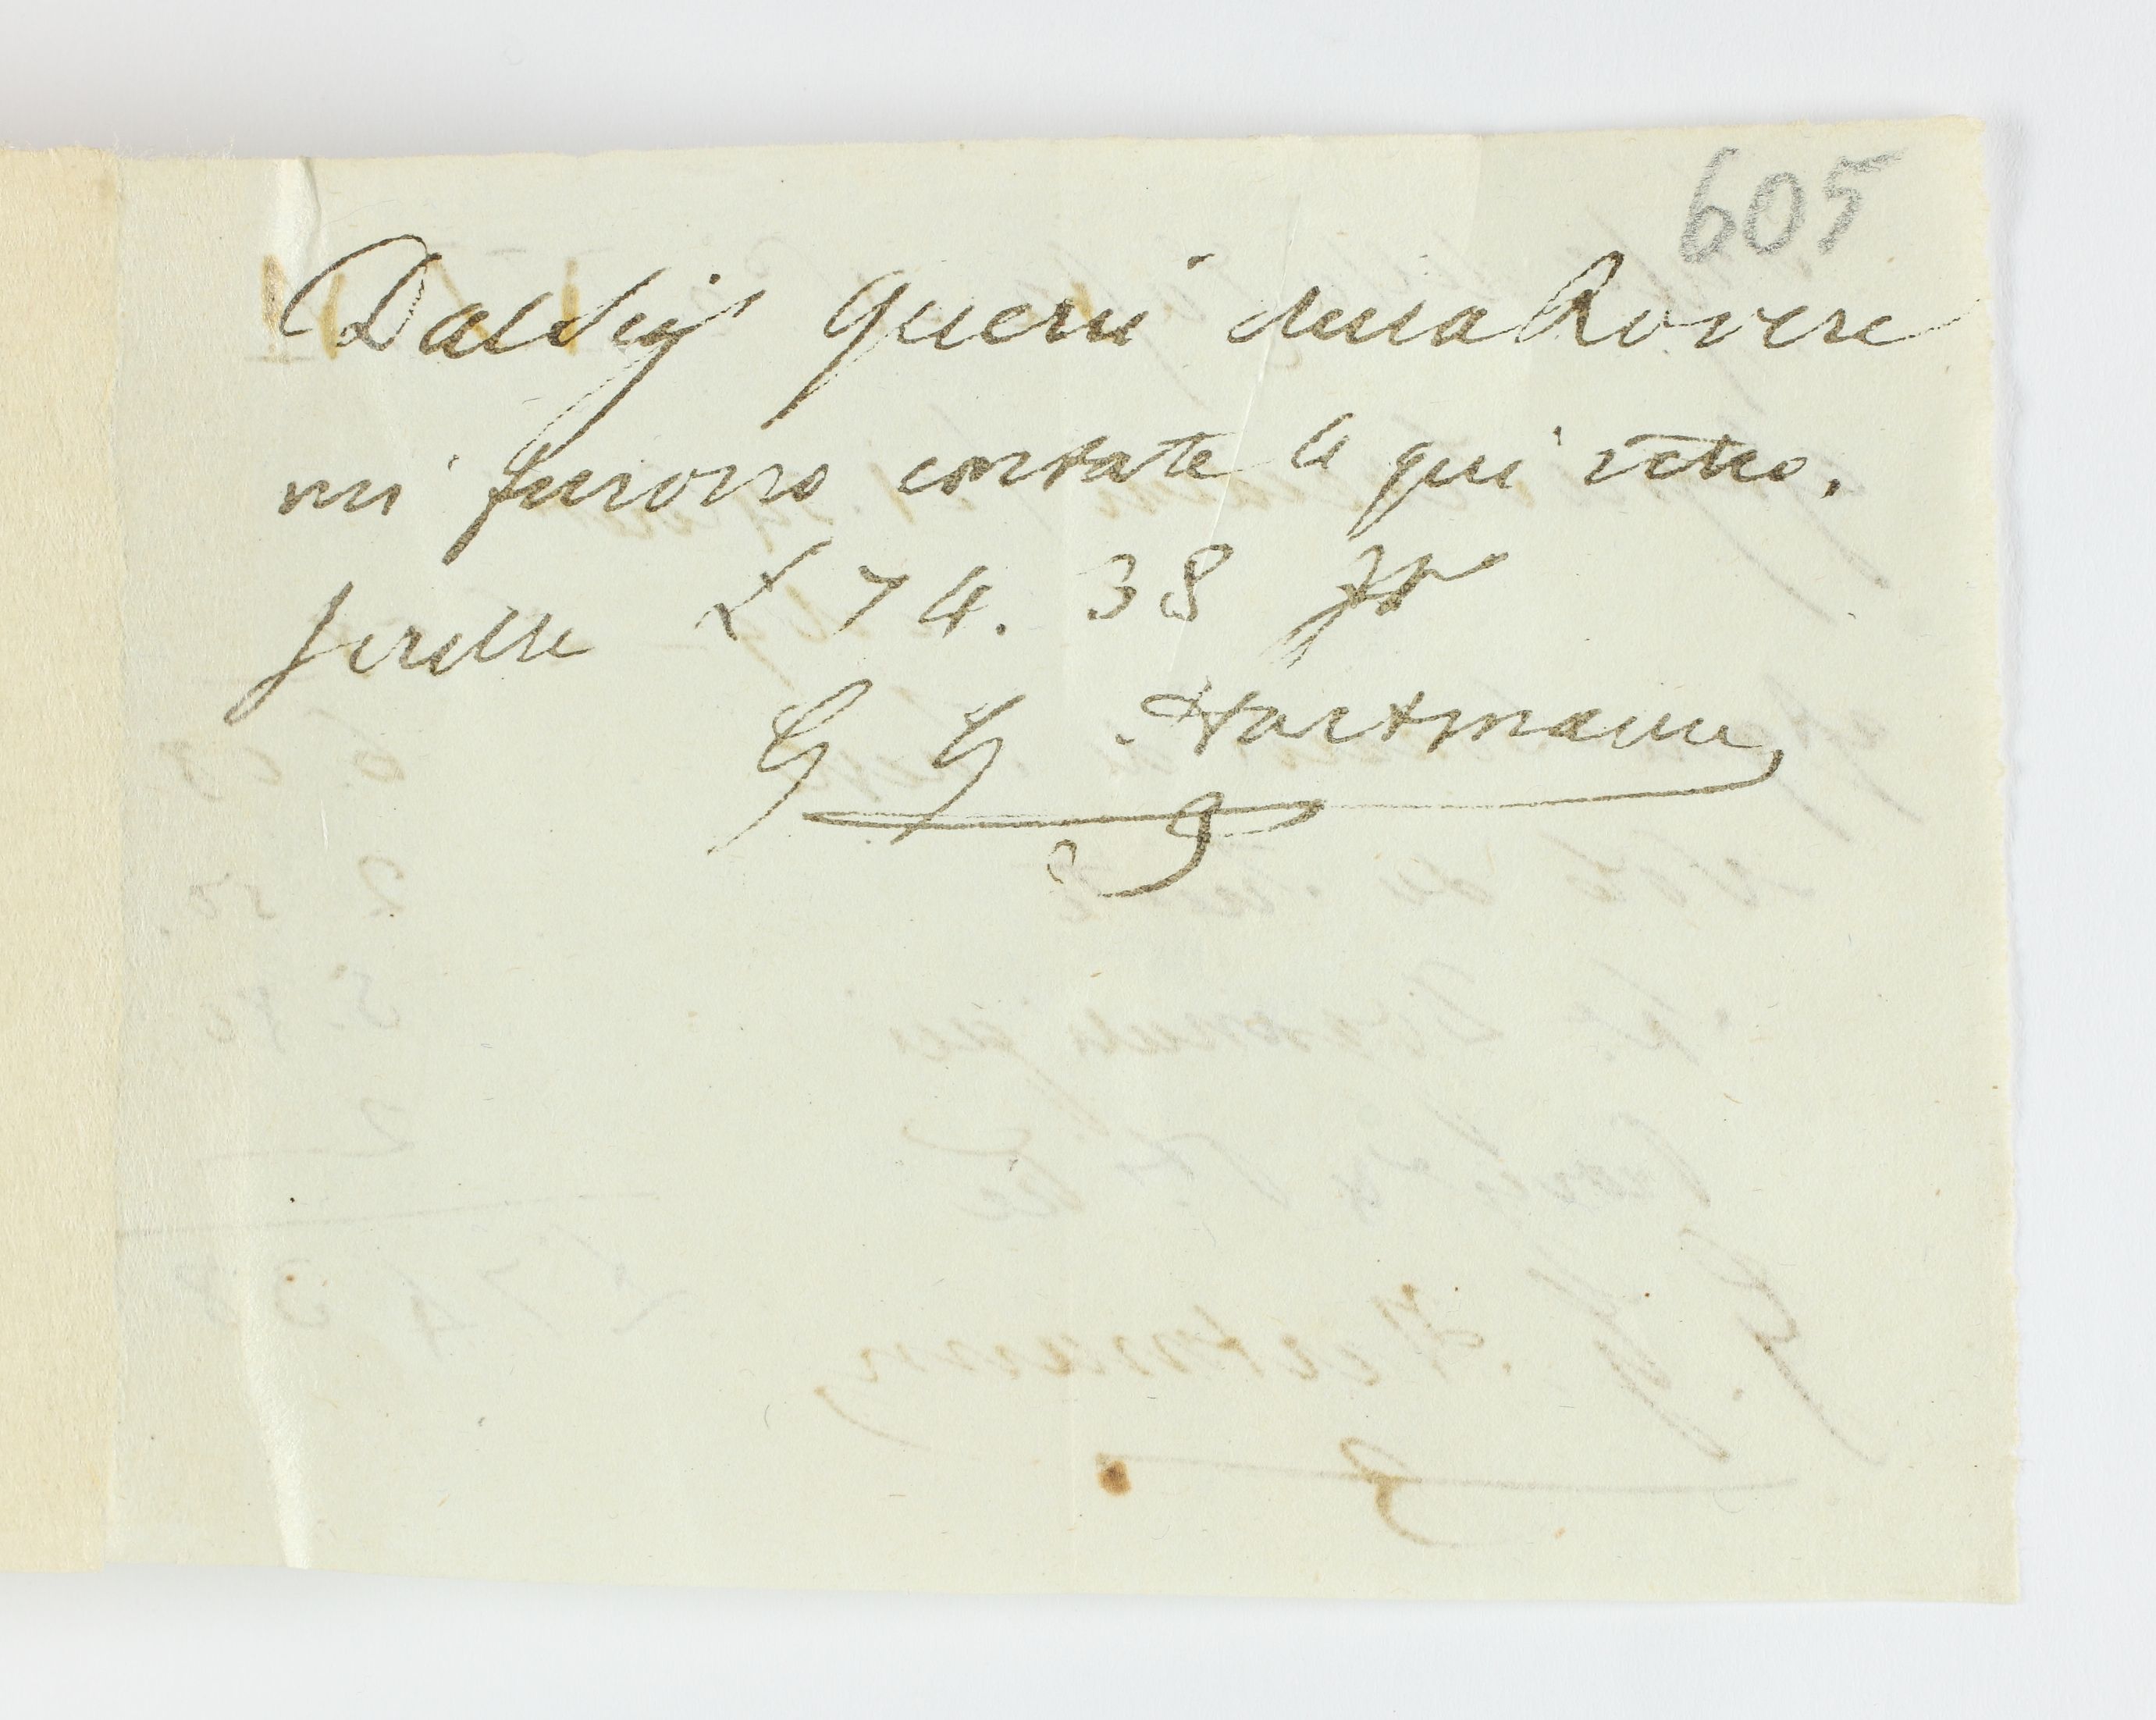 605
Dal Sig. Guerri della Rovere
mi furono contate le qui retro.
scritte £ 74. 38
G G Hartmann